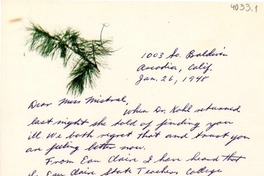 4033.1
1003 So. Baldwin
Arcadia, Calif.
Jan. 26, 1948
Dear Miss Mistral,
When Dr. Kohl returned
last night she told of finding you
ill. We both regret that and trust you
are feeling better now.
From Eau Claire I have heard that
Eau Claire State Teachers College